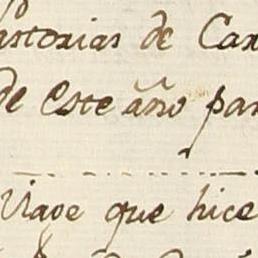 astorias de Car
de este año par
Viage que hice